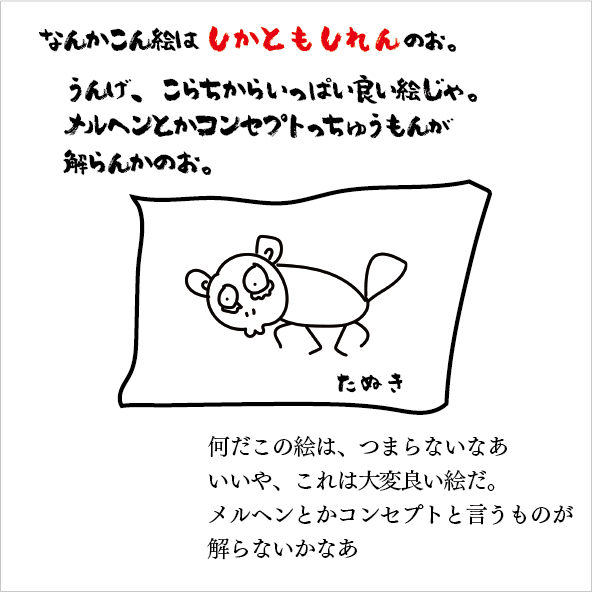 なんかこん絵はしかともしれんのお。
うんげ、こらちからいっぱい良い絵じゃ。
メルヘンとかコンセプトっちゅうもんが
解らんかのお。
たぬき
何だこの絵は、つまらないなあ
いいや、これは大変良い絵だ。
メルヘンとかコンセプトと言うものが
解らないかなあ